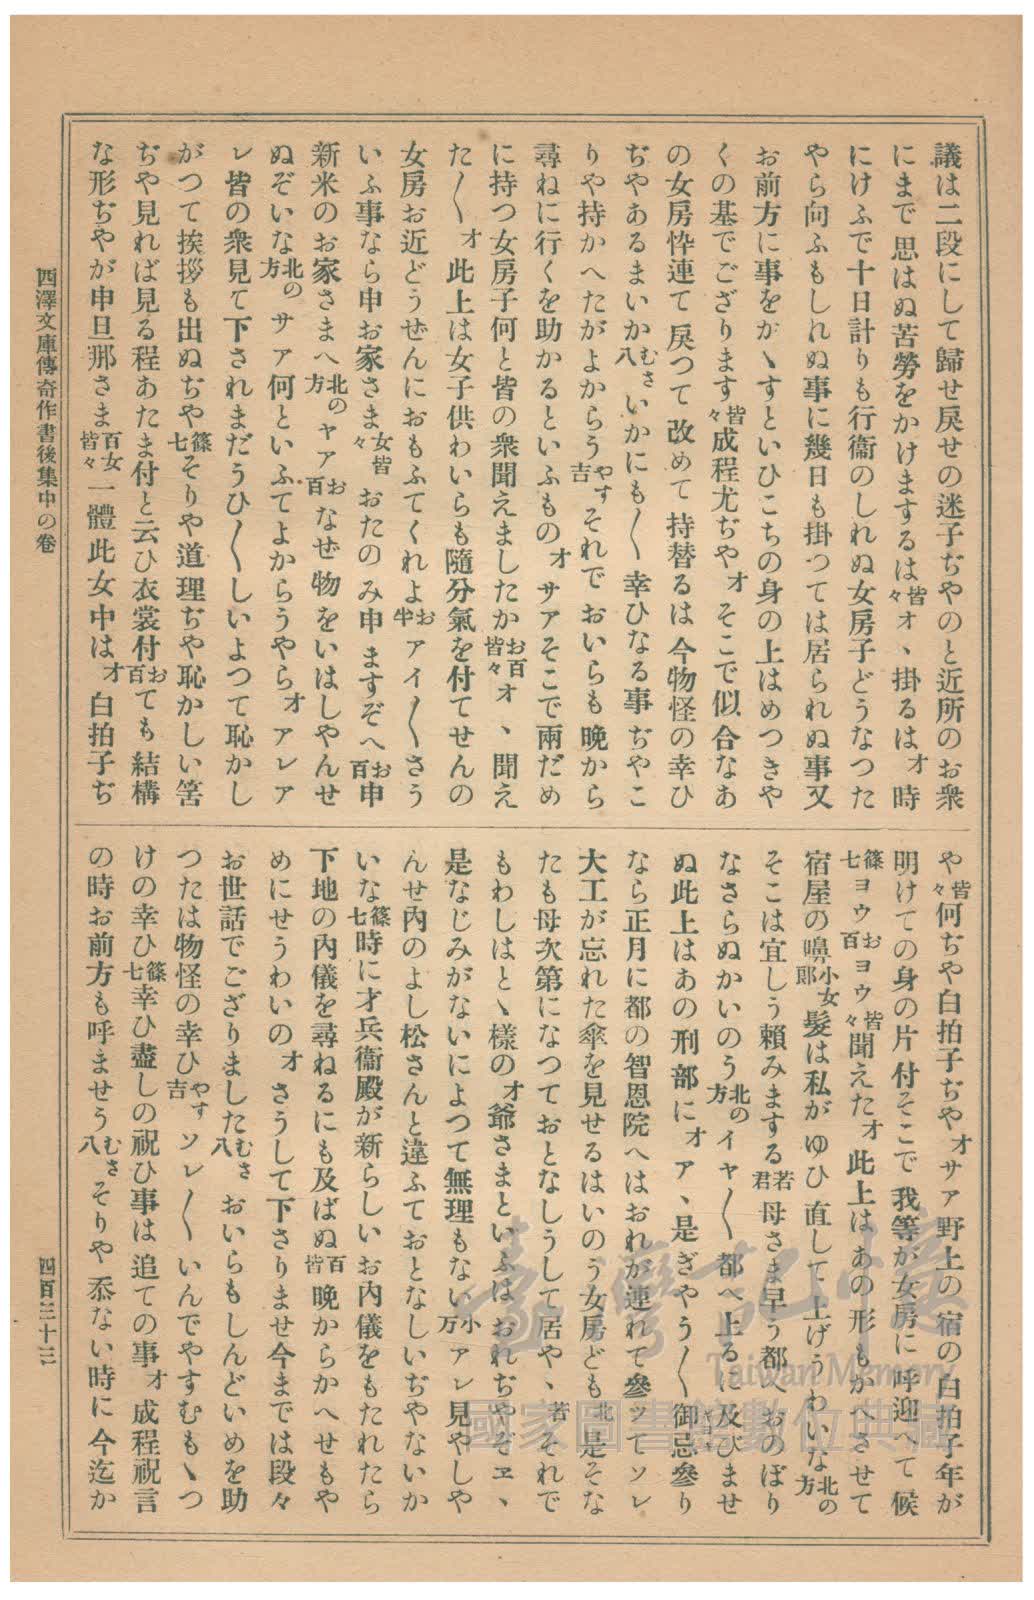 議は二段にして歸せ戻せの迷子ぢやのと近所のお衆
にまで思はぬ苦勞をかけまするは皆々オヽ掛るはオ時
にけふで十日計りも行衞のしれぬ女房子どうなつた
やら向ふもしれぬ事に幾日も掛つては居られぬ事又
お前方に事をかゝすといひこちの身の上はめつきや
くの基でござります皆々成程尤ぢやオそこで似合なあ
の女房忰連て戻つて改めて持替るは今物怪の幸ひ
ぢやあるまいかむさ八いかにも〳〵幸ひなる事ぢやこ
りや持かへたがよからうやす吉それでおいらも晩から
尋ねに行くを助かるといふものオサアそこで兩だめ
に持つ女房子何と皆の衆聞えましたかお百皆々オヽ聞え
た〳〵オ此上は女子供わいらも隨分氣を付てせんの
女房お近どうぜんにおもふてくれよお半アイ〳〵さう
いふ事なら申お家さま女皆々おたのみ申ますぞへお百申
新米のお家さまへ北の方ヤアお百なぜ物をいはしやんせ
ぬぞいな北の方サア何といふてよからうやらオアレア
レ皆の衆見て下されまだうひ〳〵しいよつて恥かし
がつて挨拶も出ぬぢや篠七そりや道理ぢや恥かしい筈
ぢや見れば見る程あたま付と云ひ衣裳付お百ても結構
な形ぢやが申旦那さま百女皆々一體此女中はオ白拍子ぢ
や皆々何ぢや白拍子ぢやオサア野上の宿の白拍子年が
明けての身の片付そこで我等が女房に呼迎へて候
篠七ヨウお百ヨウ皆々聞えたオ此上はあの形もかへさせて
宿屋の嚊小女郎髮は私がゆひ直して上げうわいな北の方
そこは宜しう賴みまする若君母さま早う都へおのぼり
なさらぬかいのう北の方イヤ〳〵都へ上るに及びませ
ぬ此上はあの刑部にオアヽ是ぎやう〳〵御忌參り
なら正月に都の智恩院へはおれが連れて參ッてソレ
大工が忘れた傘を見せるはいのう女房ども北是そな
たも母次第になつておとなしうして居や、若それで
もわしはとゝ樣のオ爺さまといふはおれぢやぞヱ、
是なじみがないによつて無理もない小万アレ見やしや
んせ內のよし松さんと違ふておとなしいぢやないか
いな篠七時に才兵衞殿が新らしいお內儀をもたれたら
下地の內儀を尋ねるにも及ばぬ百皆晩からかへせもや
めにせうわいのオさうして下さりませ今までは段々
お世話でござりましたむさ八おいらもしんどいめを助
つたは物怪の幸ひやす吉ソレ〳〵いんでやすむもゝつ
けの幸ひ篠七幸ひ盡しの祝ひ事は追ての事オ成程祝言
の時お前方も呼ませうむさ八そりや忝ない時に今迄か
西澤文庫傳奇作書後集中の卷
四百三十三
臺灣記憶
Taiwan Memory
國家圖書館數位典藏